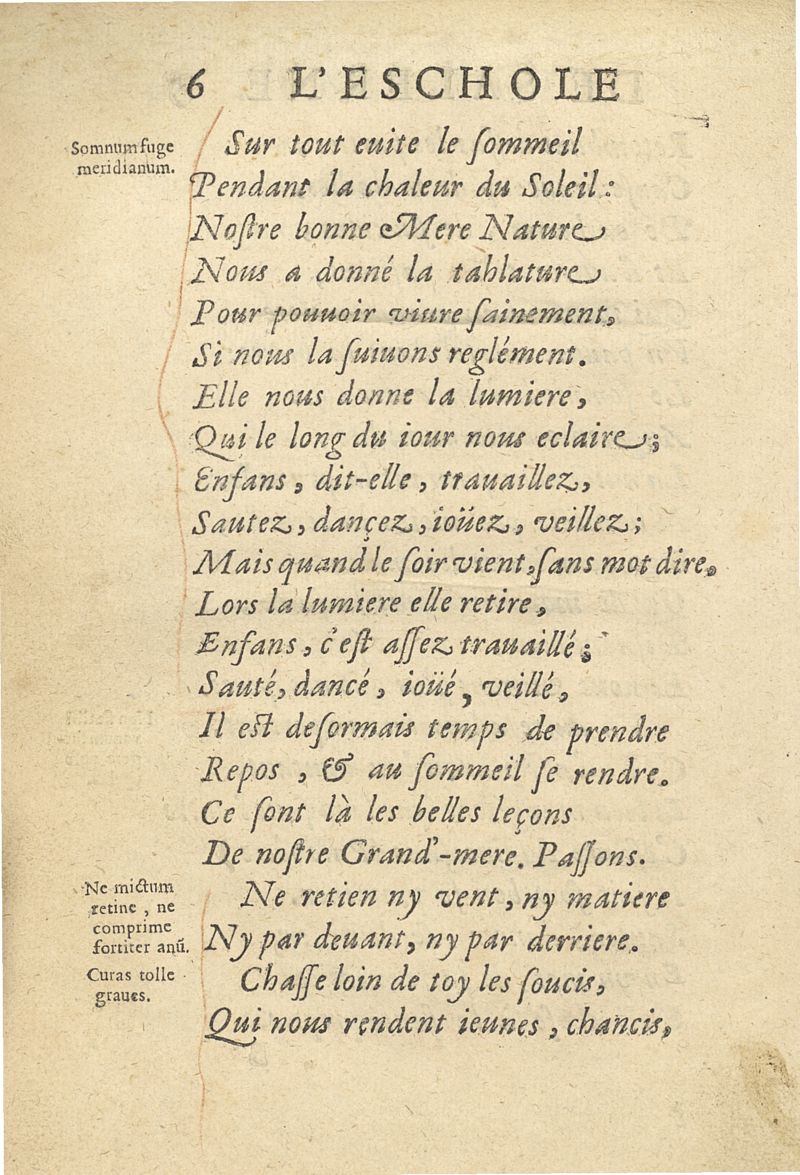 6 L'ESCHOLE
Somnum fuge
meridianum.
Sur tout euite le ſommeil
Pendant la chaleur du Soleil:
Noſtre bonne Mere Nature
Nous a donné la tablature
Pour pouuoir viure ſainement,
Si nous la ſuiuons reglément.
Elle nous donne la lumiere,
Qui le long du iour nous eclaire;
Enfans, dit-elle, trauaillez,
Sautez, dançez, ioüez, veillez;
Mais quand le ſoir vient, ſans mot dire,
Lors la lumiere elle retire,
Enfans, c'eſt aſſez trauaillé;
Sauté, dancé, ioüé, veillé,
Il eſt deſormais temps de prendre
Repos, & au ſommeil ſe rendre.
Ce ſont là les belles leçons
De noſtre Grand'-mere. Paſſons.
Ne mictum
retine, ne
comprime
fortiter anũ.
Ne retien ny vent, ny matiere
Ny par deuant, ny par derriere.
Curas tolle
graues.
Chaſſe loin de toy les ſoucis,
Qui nous rendent ieunes, chancis,